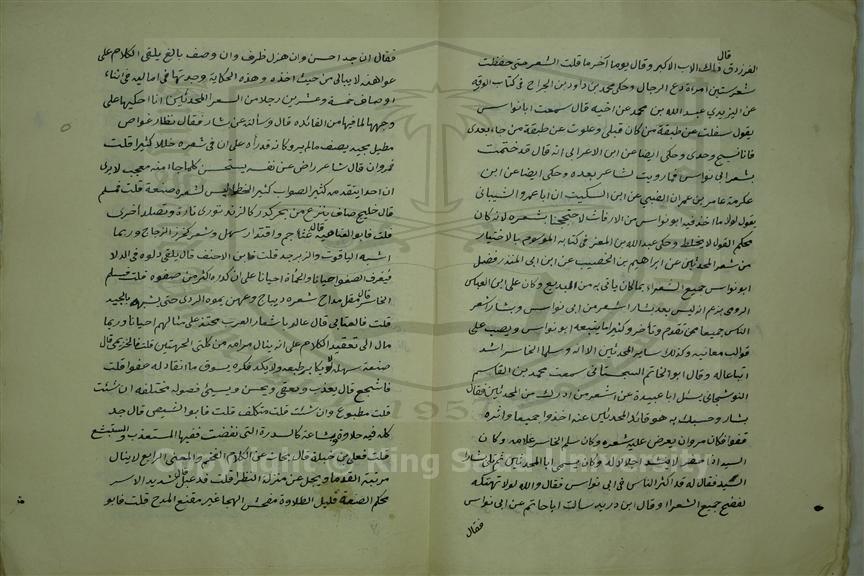 قال
الفرزدق فذاك الاب الاكبر وقال يوما آخر ما قلت الشعر حتى حفظت
شعر ستين امرأة دع الرجال وحكى محمد بن داود بن الجراح فى كتاب الورقه
عن اليزيدي عبد الله بن محمد عن اخيه قال سمعت ابا نواس
يقول سفلت عن طبقة من كان قبلى وعلوت عن طبقة من جاء بعدى
فانا نسيج وحدى وحكى ايضا عن ابن الاعرابى انه قال قد ختمت
بشعر ابى نواس فما رويت لشاعر بعده وحكى ايضا عن ابن
عكرمة عامر بن عمران الضبي عن ابن السكيت ان ابا عمرو الشيبانى
يقول لولا ما اخذ فيه ابو نواس من الارفاث لاحتججنا بشعره لانه كان
محكم القول لا يخلط وحكى عبد الله بن المعتز فى كتابه الموسوم بالاختيار
من شعر المحدثين عن ابراهيم بن الخصيب عن ابن ابى المنذر فضل
ابو نواس جميع الشعراء بما كان ياتى به من البديع وكان على ابن العباس
الرومى يزعم انه ليس بعد بشار اشعر من ابى نواس وبشار اشعر
الناس جميعا ممن تقدم وتاخر وكثيرا ما يتبعه ابو نواس ويصب على
قوالب معانيه وكذلك ساير المحدثين الا انه وسلم الخاسر اشد
اتباعا له وقال ابو الحاتم السجستانى سمعت محمد بن القاسم
النوشجانى يسئل ابا عبيدة عن اشعر من ادرك من المحدثين فقال
بشار وحسبك به هو قائد المحدثين عنه اخذوا جميعا واثره
قفوا فكان مروان يعرض عليه شعره وكان سلم الخاسر غلامه وكان
السيد اذا حضر لا ينشد اجلالا له وكان يسمى ابا المحدثين
السيد فقال له قد اكثر الناس فى ابى نواس فقال والله لولا تهتكه
لفضح جميع الشعرا وقال ابن دريد سالت ابا حاتم عن ابى نواس
فقال
فقال ان جد احسن وان هزل ظرف وان وصف بالغ يلقى الكلام على
عواهنه لا يبالى من حيث اخذه وهذه الحكاية وجدتها فى اماليه فى اثناء
اوصاف خمسة وعشرين رجلا من الشعر المحدثين انا احكيها على
وجهها لما فيها من الفائده قال وسألته عن بشار فقال نظار غواص
مطيل مجيد يصف ما لم ير وكانه قد رآه على ان فى شعره خللا كثيرا قلت
فمروان قال شاعر راض عن نفسه يستحسن كلما جاء منه معجب لا يرى
ان احدا يتقدمه كثير الصواب كثير الخطا ليس لشعره صنعة قلت فسلم
قال خليج صاف ينزع من بحر كدر كالزند تورى نارة وتصلد اخرى
قلت فابو العتاهية قال غثا جم واقتدار سهل وشعر كخرز الزجاج وربما
اشبه الياقوت والزبرجد قلت فابن الاحنف قال يلقى دلوه فى الدلا
فيغرف الصفو احيانا والحمأة احيانا على ان كدره اكثر من صفوه قلت فسلم
الخاسر قال مقل مداح شعره ديباج وعهن يموه الردى حتى يشبه بالجيد
قلت فالعتابى قال عالم باشعار العرب محتذ على مثالهم احيانا وربما
مال الى تعقيد الكلام على انه ينال مرامه من كلتى الجهتين قلت فالخزيمى قال
صنعة سهله لا يكابر طبعه ولا يكد فكره يسوق ما انقاد له صفوا قلت
فاشجع قال يعذب ويعقى ويحسن ويسيئ فصوله مختلفة ان شئت
قلت مطبوع وان شئت قلت متكلف قلت فابو الشيص قال جد
كله فيه حلاوة وبشاعة كالسدرة التى نفضت ففيها المستعذب والمستبشع
قلت فعلى بن جبلة قال بحاث عن الكلام الفخم والمعنى الرايع لا ينال
مرتبة القدما ويجل عن منزلة النظرا قلت فدعبل قال شديد الاسر
محكم الصنعة قليل الطلاوة مفحش الهجا غير مقنع المدح قلت فابو
© King Saud University
1957